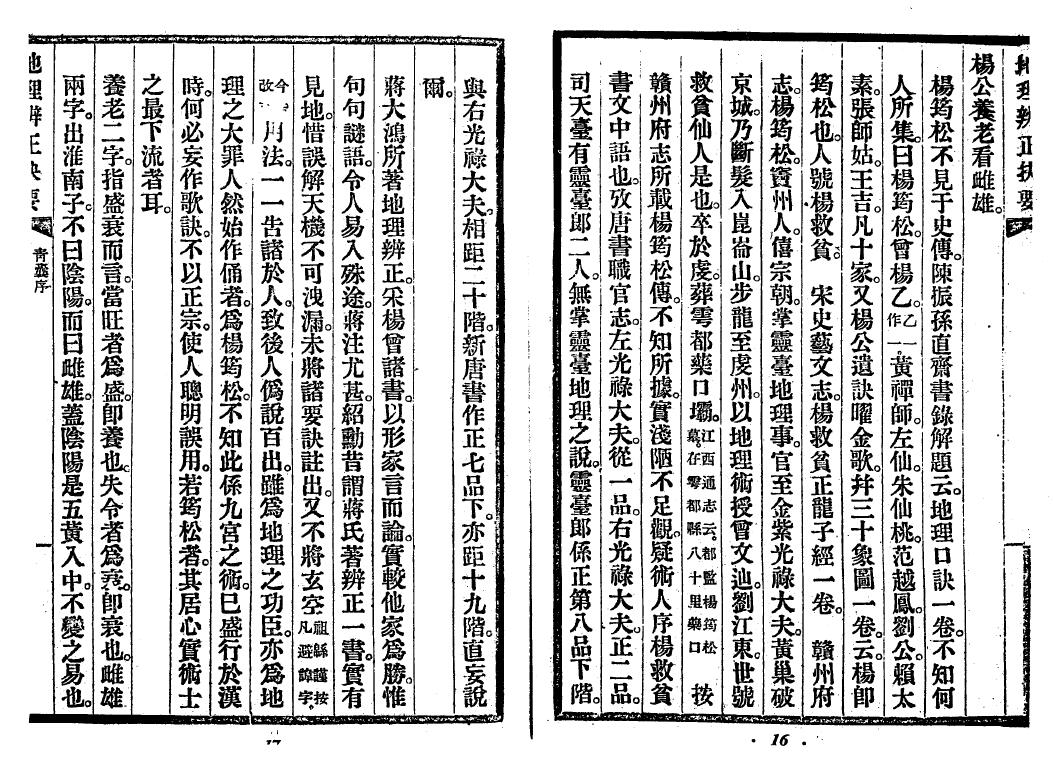 地理辨正抉要
楊公養老看雌雄。
楊筠松不見于史傳。陳振孫直齋書錄解題云。地理口訣一卷。不知何
人所集。曰楊筠松。曾楊乙。乙一作黃禪師。左仙。朱仙桃。范越鳳。劉公。賴太
素。張師姑。王吉。凡十家。又楊公遺訣曜金歌。幷三十象圖一卷。云楊卽
筠松也。人號楊救貧。 宋史藝文志。楊救貧正龍子經一卷。 贛州府
志。楊筠松。竇州人。僖宗朝。掌靈臺地理事。官至金紫光祿大夫。黃巢破
京城。乃斷髮入崑崙山。步龍至虔州。以地理術授曾文辿。劉江東。世號
救貧仙人是也。卒於虔。葬雩都藥口壩。江西通志云。都監楊筠松墓。在雩都縣八十里藥口 按
贛州府志所載楊筠松傳。不知所據。實淺陋不足觀。疑術人序楊救貧
書文中語也。攷唐書職官志。左光祿大夫。從一品。右光祿大夫。正二品。
司天臺有靈臺郎二人。無掌靈臺地理之說。靈臺郎係正第八品下階。
16
與右光祿大夫。相距二十階。新唐書作正七品下。亦距十九階。直妄說
爾。
蔣大鴻所著地理辨正。采楊曾諸書。以形家言而論。實較他家爲勝。惟
句句謎語。令人易入殊途。蔣注尤甚。紹勳昔謂蔣氏著辨正一書。實有
見地。惜誤解天機不可洩漏。未將諸要訣註出。又不將玄空祖緜謹按凡避諱字。
今改用法。一一告諸於人。致後人僞說百出。雖爲地理之功臣。亦爲地
理之大罪人。然始作俑者。爲楊筠松。不知此係九宮之術。已盛行於漢
時。何必妄作歌訣。不以正宗。使人聰明誤用。若筠松者。其居心實術士
之最下流者耳。
養老二字。指盛衰而言。當旺者爲盛。卽養也。失令者爲衰。卽衰也。雌雄
兩字。出淮南子。不曰陰陽。而曰雌雄。蓋陰陽是五黃入中。不變之易也。
地理辨正抉要
靑囊序
一
17